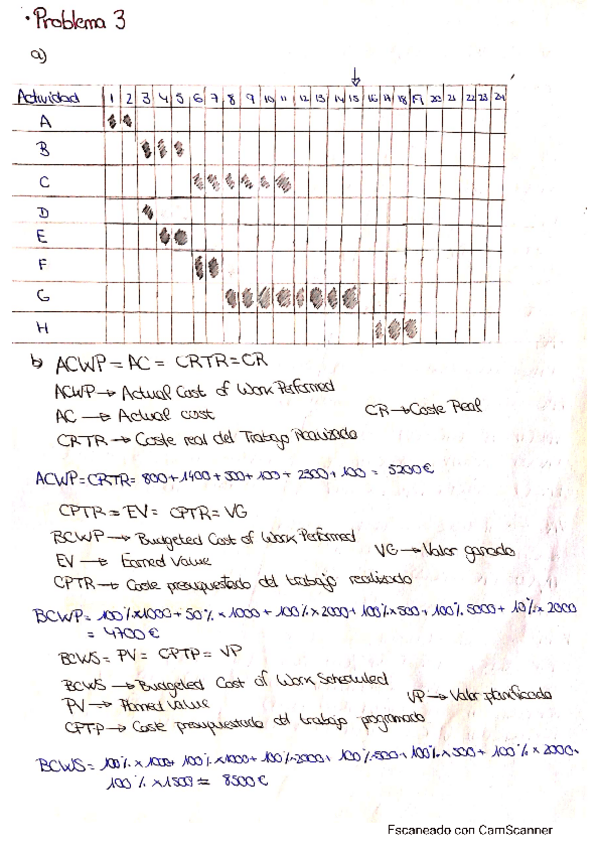 · Problema 3
a)
Actividad 1 2 3 4 5 6 7 8 9 10 11 12 13 14 15 16 17 18 19 20 21 22 23 24
A
B
C
D
E
F
G
H
b) ACWP = AC = CRTR = CR
ACWP → Actual Cost of Work Performed
AC → Actual cost CR → Coste Real
CRTR → Coste real del Trabajo Realizado
ACWP = CRTR = 800 + 1400 + 500 + 100 + 2300 + 100 = 5200€
CPTR = EV = CPTR = VG
BCWP → Budgeted Cost of Work Performed
EV → Earned Value VG → Valor ganado
CPTR → Coste presupuestado del trabajo realizado
BCWP = 100% x 1000 + 50% x 1000 + 100% x 2000 + 100% x 500 + 100% 5000 + 10% x 2000
= 4700 €
BCWS = PV = CPTP = VP
BCWS → Budgeted Cost of Work Scheduled
PV → Planed Value VP → Valor planificado
CPTP → Coste presupuestado del trabajo programado
BCWS = 100% x 1000 + 100% x 1000 + 100% x 2000 + 100% x 500 + 100% x 500 + 100% x 2000 +
100% x 1500 = 8500 €
Escaneado con CamScanner